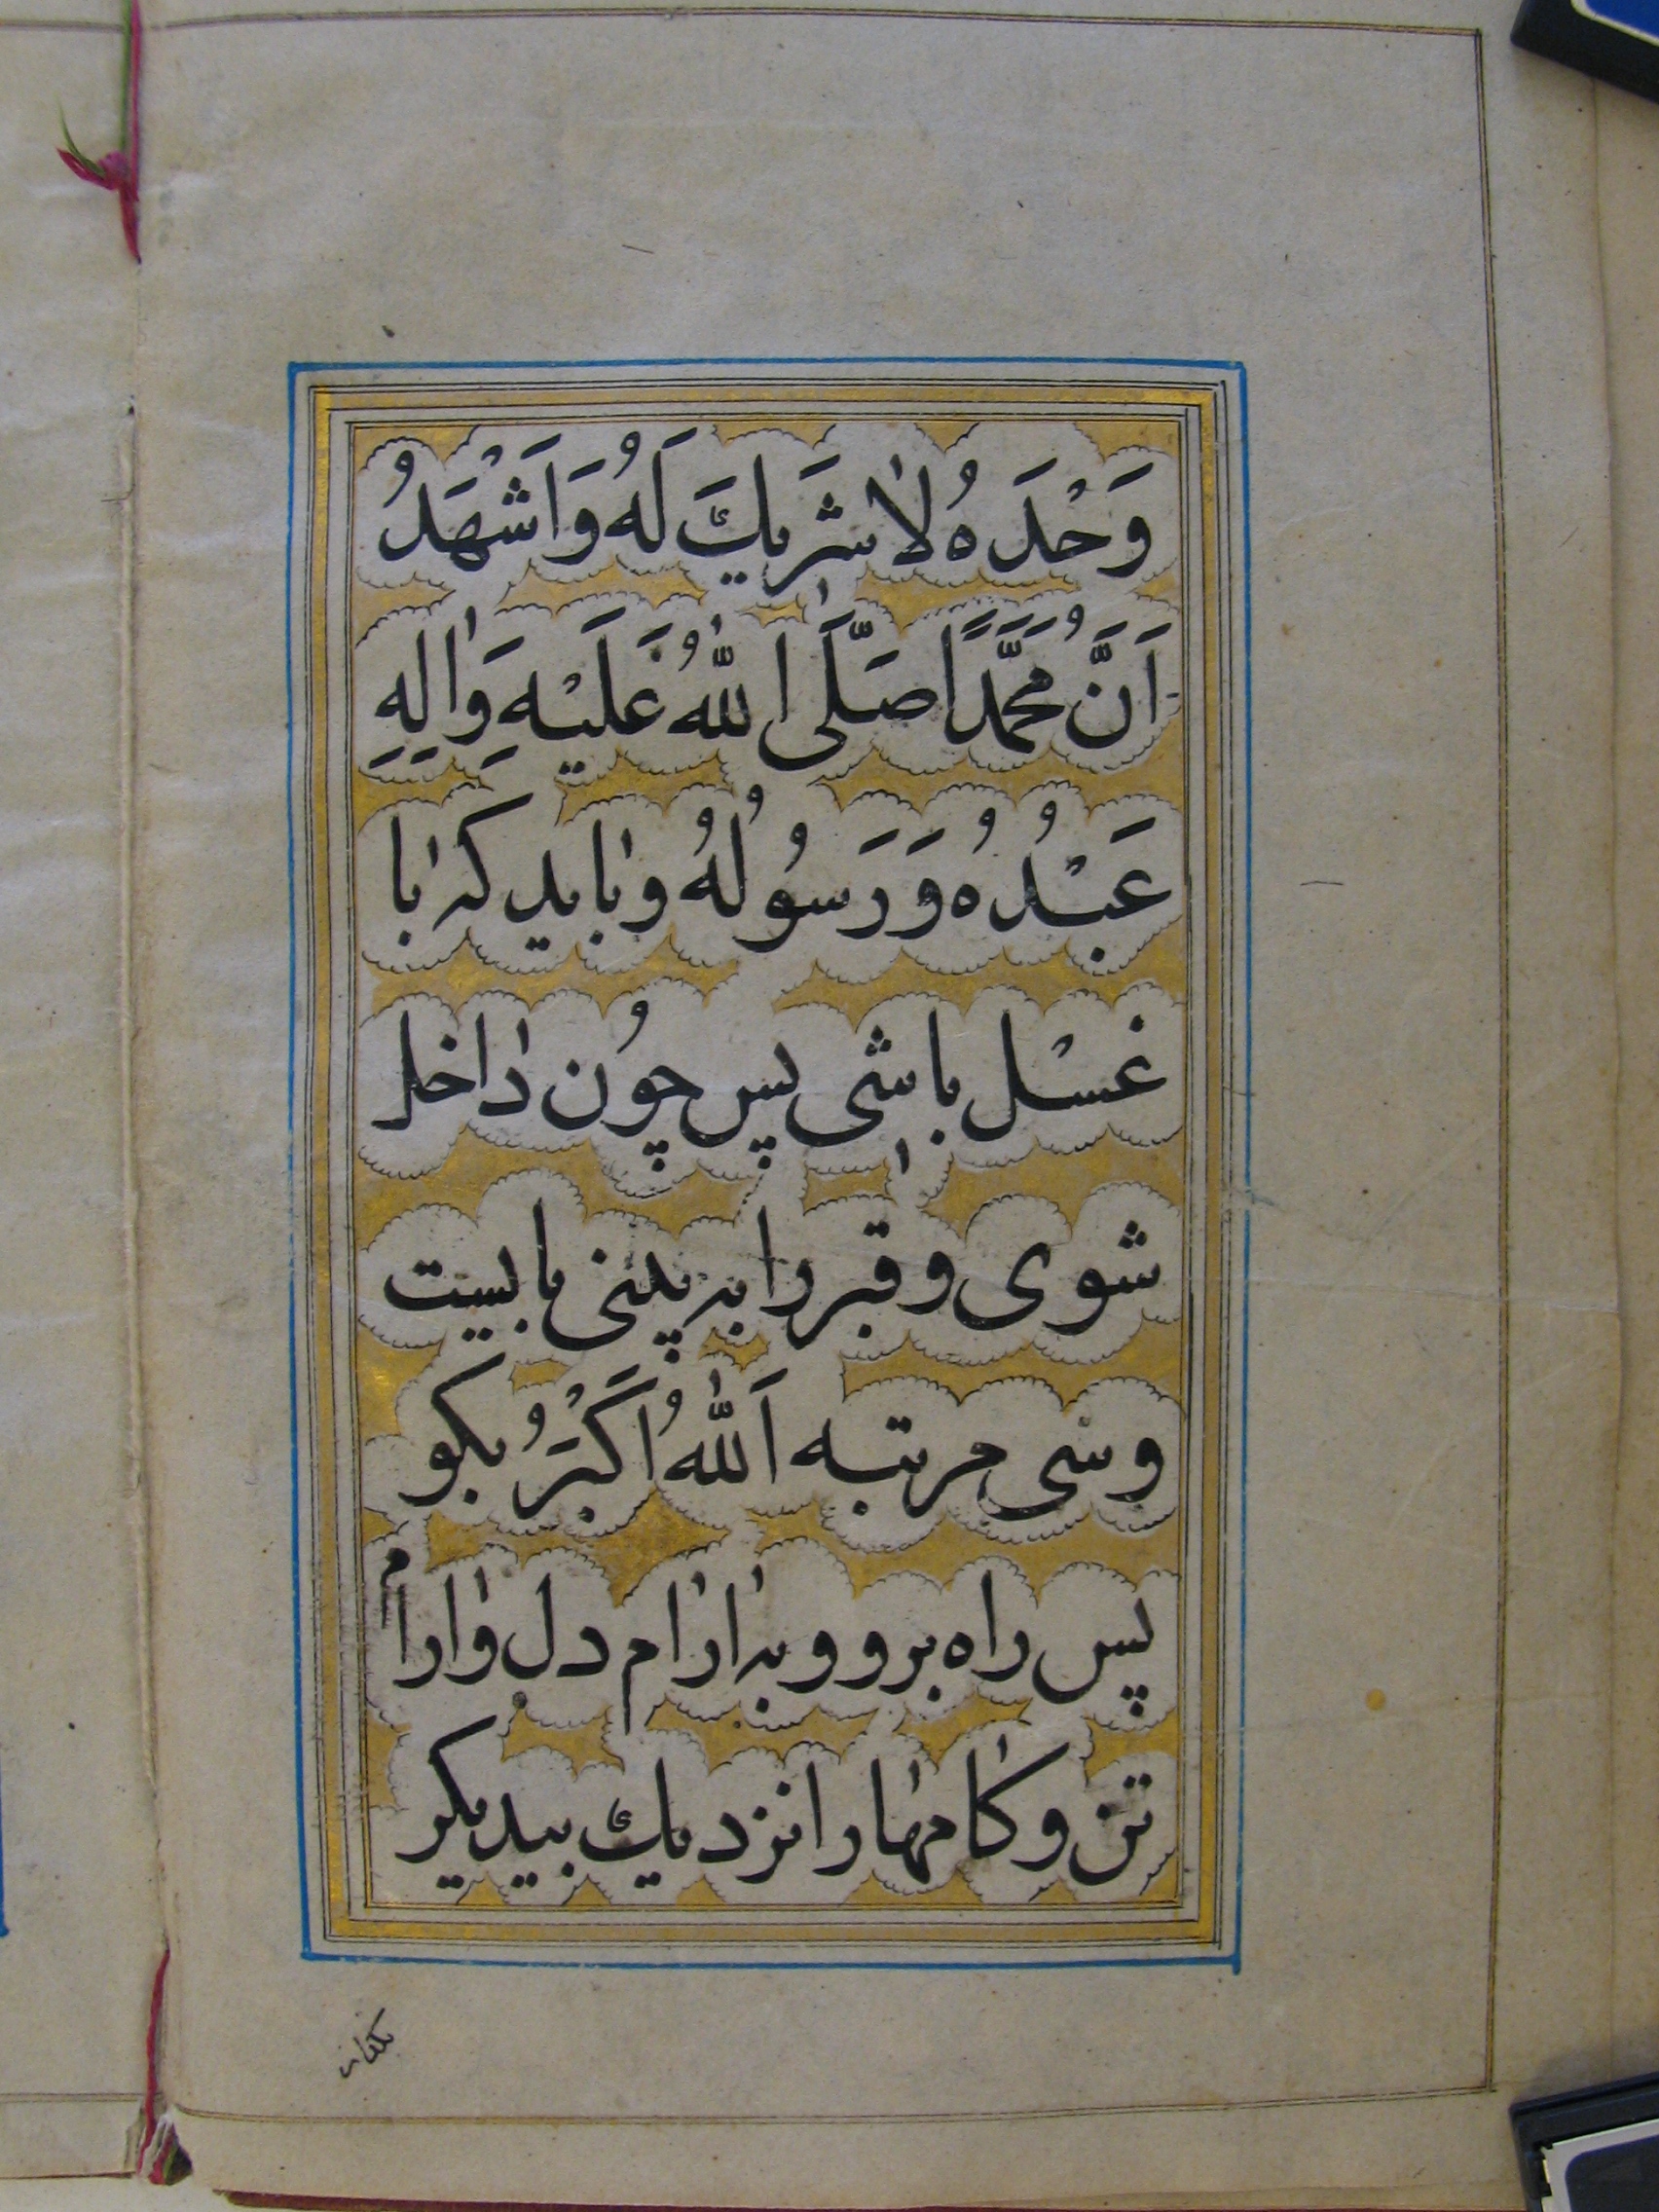 وَحْدَهُ لٰا شَرِيكَ لَهُ وَاَشْهَدُ
اَنَّ مُحَمَّدًا صَلَّى اللّٰهُ عَلَيْهِ وَاٰلِهِ
عَبْدُهُ وَرَسُولُهُ وبايد كه با
غسْل باشى پس چُون داخل
شوى و قبر را به بينى بايست
و سى مرتبه اَللّٰهُ اَكْبَرُ بكو
پس راه برو و به ارام دل و ارام
تن و كامها را نزديك بيديكر